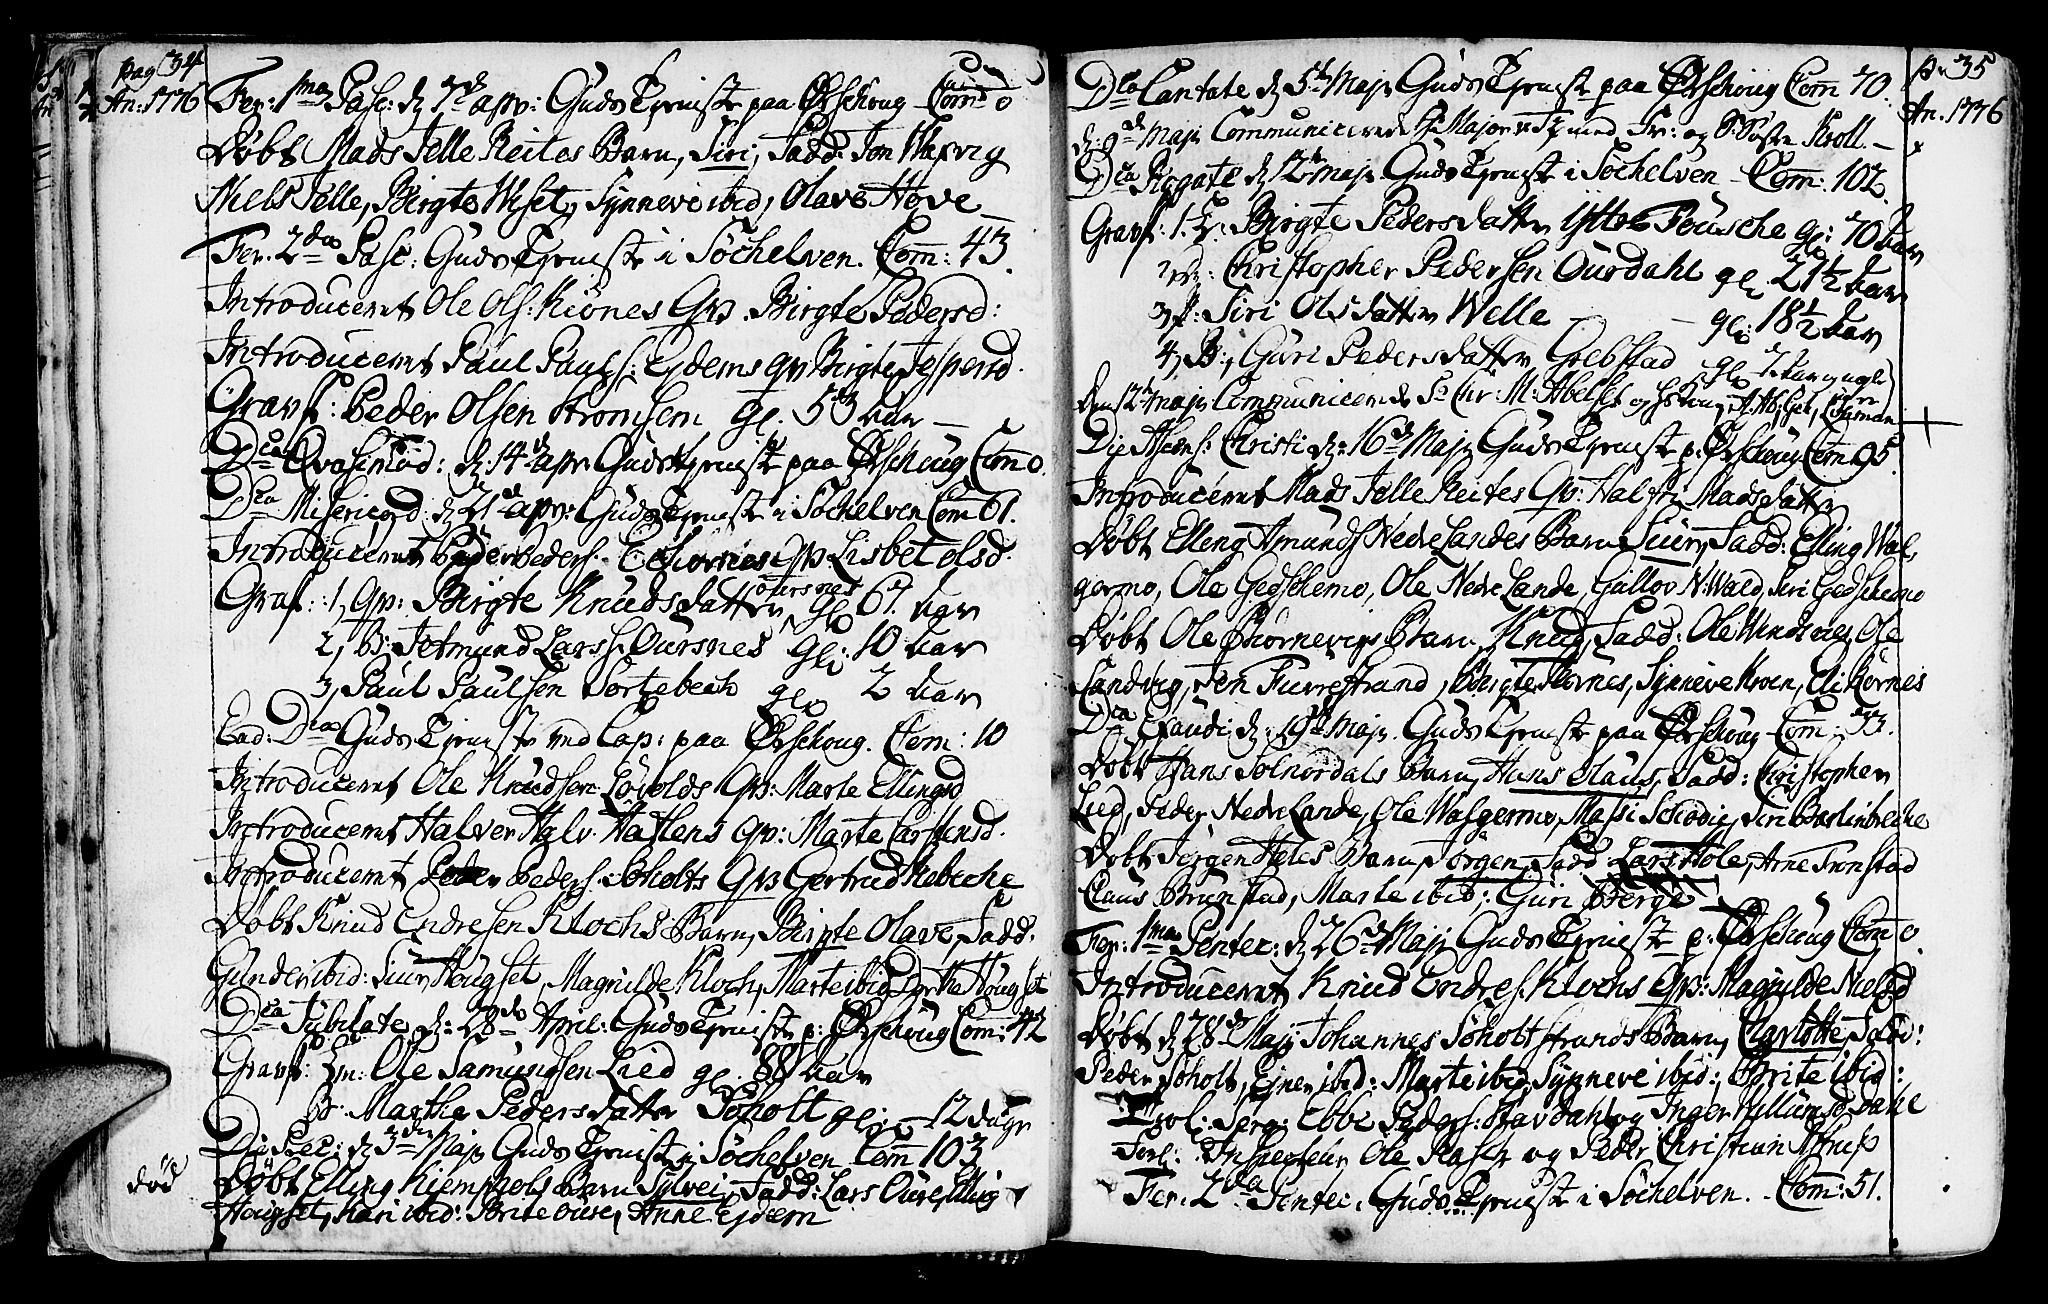 Pag 34
An: 1776
Fer: 1ma Pasc: d 7de apr: Guds Tjeniste paa Ørschoug Com̄ 0
Døbt Mads Telle Reites Barn, Siri, Fadd: Jon Waxvig
Niels Telle, Birgte Weset, Synneve ibid, Olave Hove
Fer. 2da Pasc: Guds Tjeniste i Søchelven. Com̄: 43.
Introduceret Ole Ols: Kiønes Qv. Birgte Pedersd:
Introduceret Paul Pauls: Ejdems qv Birgte Jespersd.
Gravf: Peder Olsen Stromsem gl. 53 Aar
Dca Qvasimod: d: 14de apr Guds Tjeniste paa Ørschoug Com̄ 0.
Dca Misericord: d 21de apr: Guds Tjeniste i Søchelven Com̄ 61.
Introduceret Peder Peders: Qv: Lisbet Olsd.
Graf: 1, Qv: Birgte Knudsdatter Oursnes gl 67. Aar
2, B: Jetmund Larss: Oursnes gl: 10 Aar
3, Paul Paulsen Sortebech gl 2 Aar
Ead: Dca Guds Tjeniste ved Cap: paa Ørschoug. Com: 10
Introduceret Ole Knudsen Løvolds Qv: Marte Ellingsd
Introduceret Halver Halv: Hatlens Qv: Marte Carstensd.
Introduceret Peder Peders: Søholts Qv Gertrud
Døbt Knud Endresen Klochs Barn, Birgte Olave, Fadd:
Gunder ibid: Siur Hougset, Magnilde Kloch, Marte ibid, Dorthe Hougset
Dca Jubilate d: 28de April: Guds Tjeniste p: Ørschoug Com: 42
Gravf: Ole Samundsen Lied gl. 88 Aar
B: Marthe Pedersdatter Søholt gl: 12 dage
Die Prec: d 3die Maj Guds Tjeniste i Søchelven Com̄ 103
død
Døbt Elling Kiemphols Barn Sylvei, Fadd: Lars Oure, Elling
Hougset, Kari ibid: Brite Oure, Anne Ejdem
P: 35
An. 1776
Dca Cantate d 5te Maj Guds Tjeniste paa Ørschoug Com̄ 70.
d: 9de Maj Communicerede Major med Fr: og Kroll.
Dca Rogate d 12te Maj Guds Tjeniste i Søchelven Com̄: 102
Gravf: 1. Birgte Pedersdatter gl: 70 Aar
2 Christopher Pedersen Ourdahl gl 21½ Aar
3 P: Siri Olsdatter Welle gl: 18½ Aar
4, B: Guri Pedersdatter Grebstad gl
Den 12te Maj Communicerede Sr Chr: M: Abelset og
Die Ascens: Christi d: 16de Maj Guds Tjeniste p: Ørschoug Com̄ 95.
Introduceret Mads Telle Reites Qv: Halfri Madsdatter
Døbt Elling Amunds Nedre Landes Barn Siur, Fadd: Elling Wal,
germo, Ole Gedschemo, Ole Nedre Lande, Gullov N: Wald, Siri Gedschemo
Døbt Ole Biornevigs Barn, Knud, Fadd: Ole Windsnes, Ole
Sandvig, Jen Furrestrand, Birgte Kornes, Synneve Kroen, Eli Kornes
Dca Exaudi d: 19de Maj. Guds Tjeniste paa Ørschoug Com: 33.
Døbt Hans Solnordals Barn, Hans Claus, Fadd: Christopher
Lied, Peder Nedre Lande, Ole Walgermo, Massi Schodie, Siri
Døbt Jørgen Heles Barn, Jørgen, Fadd Lars Hole, Arne Tronstad
Claus Brunstad, Marte ibid; Guri Berge
Fer: 1ma Pentec: d 26de Maj Guds Tjeniste p: Ørschoug Com̄ 0.
Introduceret Knud Endres: Klochs Qv: Magnilde Nielsd
Døbt d 28de Maj Johannes Søholtstrands Barn, Charlotte, Fadd:
Peder Søholt, Ejner ibid: Marte ibid, Synneve ibid:, Brite ibid:
Serg: Ebbe Peders: Stavdahl og Inger Dahle
Forl: Inspecteur Ole Rasch og Peder Christian Astrup
Fer: 2da Pentec: Guds Tjeniste i Søchelven. Com: 51.